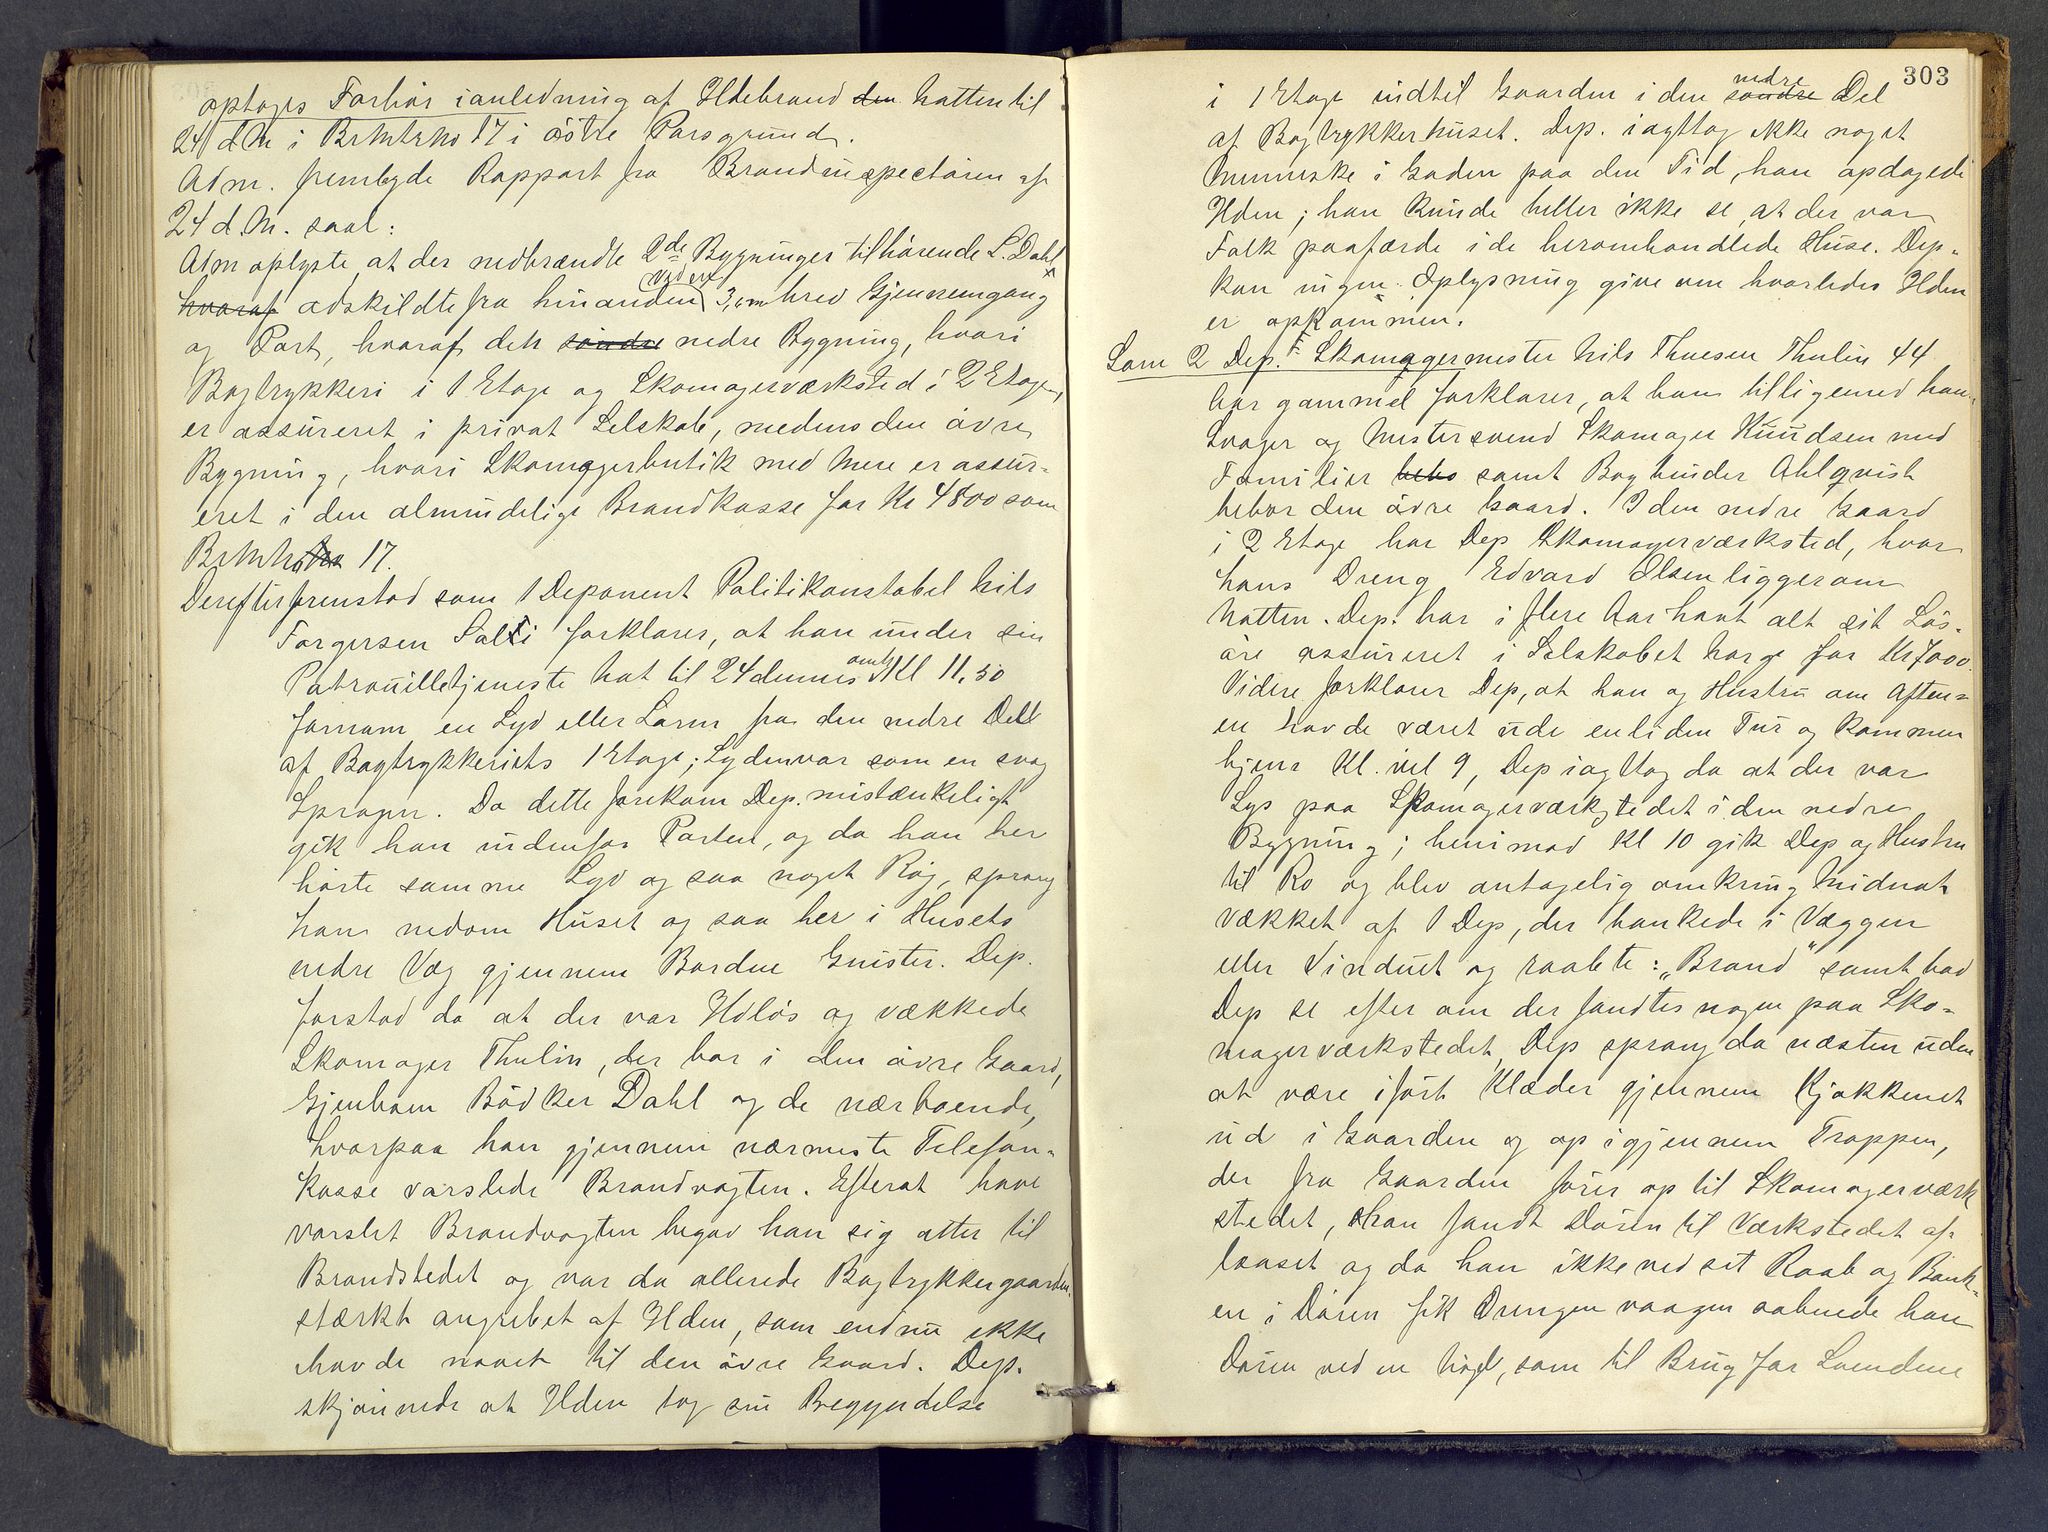 optages Forhør i anledning af Ildebrand den Natten til
24 d M i Brmtrno 17 i østre Porsgrund.
Adm. fremlagde Rapport fra Brandinspectøren af
24 d. M. saal:
Adm oplyste at der nedbrændte 2de Bygninger tilhørende L. Dahl
hvoraf adskildte fra hinanden ved en 3,0 m bred Gjennemgang
og Port, hvoraf den søndre nedre Bygning, hvori
Bogtrykkeri i 1 Etage og Skomagerværksted i 2 Etage,
er assureret i privat Selskab, medens den øvre
Bygning, hvori Skomagerbutik med Mere er assur-
eret i den almindelige Brandkasse for Kr 4800 som
Brmtrno 17.
Derefter fremstod som 1 Deponent Politikonstabel Nils
Torgersen Salti forklarer, at han under sin
Patrouilletjeneste Nat til 24 dennes omtr Kl 11,50
fornam en Lyd eller Larm fra den nedre Del
af Bogtrykkeriets 1 Etage; Lyden var som en svag
Spragen. Da dette forekom Dep. mistænkeligt
gik han indenfor Porten, og da han her
hørte samme Lyd og saa noget Røg, sprang
han nedom Huset og saa her i Husets
nedre Væg gjennem Bordene Gnister. Dep.
forstod da at der var Ildløs og vækkede
Skomager Thulin, der bor i den øvre Gaard,
Gjenboen Bødker Dahl og de nærboende,
hvorpaa han gjennem nærmeste Telefon-
kasse varslede Brandvagten. Efterat have
varslet Brandvagten begav han sig atter til
Brandstedet og var da allerede Bogtrykkergaarden
stærkt angrebet af Ilden, som endnu ikke
havde naaet til den øvre Gaard. Dep.
skjønnede at Ilden tog sin Begyndelse
303
i 1 Etage indtil Gaarden i den søndre nedre Del
af Bogtrykkerhuset. Dep. iagttog ikke noget
Menneske i Gaden paa den Tid, han opdagede
Ilden; han kunde heller ikke se at der var
Folk paafærde i de heromhandlede Huse. Dep.
kan ingen Oplysning give om hvorledes Ilden
er opkommen.
Som 2 Dep. Skomagermester Nils Thuesen Thulin 44
Aar gammel forklarer, at han tilligemed hans
Svoger og Mestersvend Skomager Knudsen med
Familier bebo samt Bogbinder Ahlqvist
bebor den øvre Gaard. I den nedre Gaard
i 2 Etage har Dep Skomagerværksted, hvor
hans Dreng Edvard Olsen ligger om
Natten. Dep. har i flere Aar havt alt sit Løs-
øre assureret i Selskabet Norge for Kr 7000.
Videre forklarer Dep, at han og Hustru om Aften-
en havde været ude en liden Tur og kommen
hjem Kl. vel 9, Dep iagttog da at der var
Lys paa Skomagerværkstedet i den nedre
Bygning; henimod Kl 10 gik Dep og Hustru
til Ro og blev antagelig omkring Midnat
vækket af 1 Dep, der bankede i Væggen
eller Vinduet og raabte: „Brand" samt bad
Dep se efter om der fandtes nogen paa Sko-
magerværkstedet, Dep sprang da næsten uden
at være iført Klæder gjennem Kjøkkenet
ud i Gaarden og op igjennem Trappen,
der fra Gaarden fører op til Skomagerværk
stedet, han fandt Døren til Værkstedet af-
laaset og da han ikke ved sit Raab og Bank-
en i Døren fik Drengen vaagen aabnede han
Døren ved en Nøgl, som til Brug for Svendene